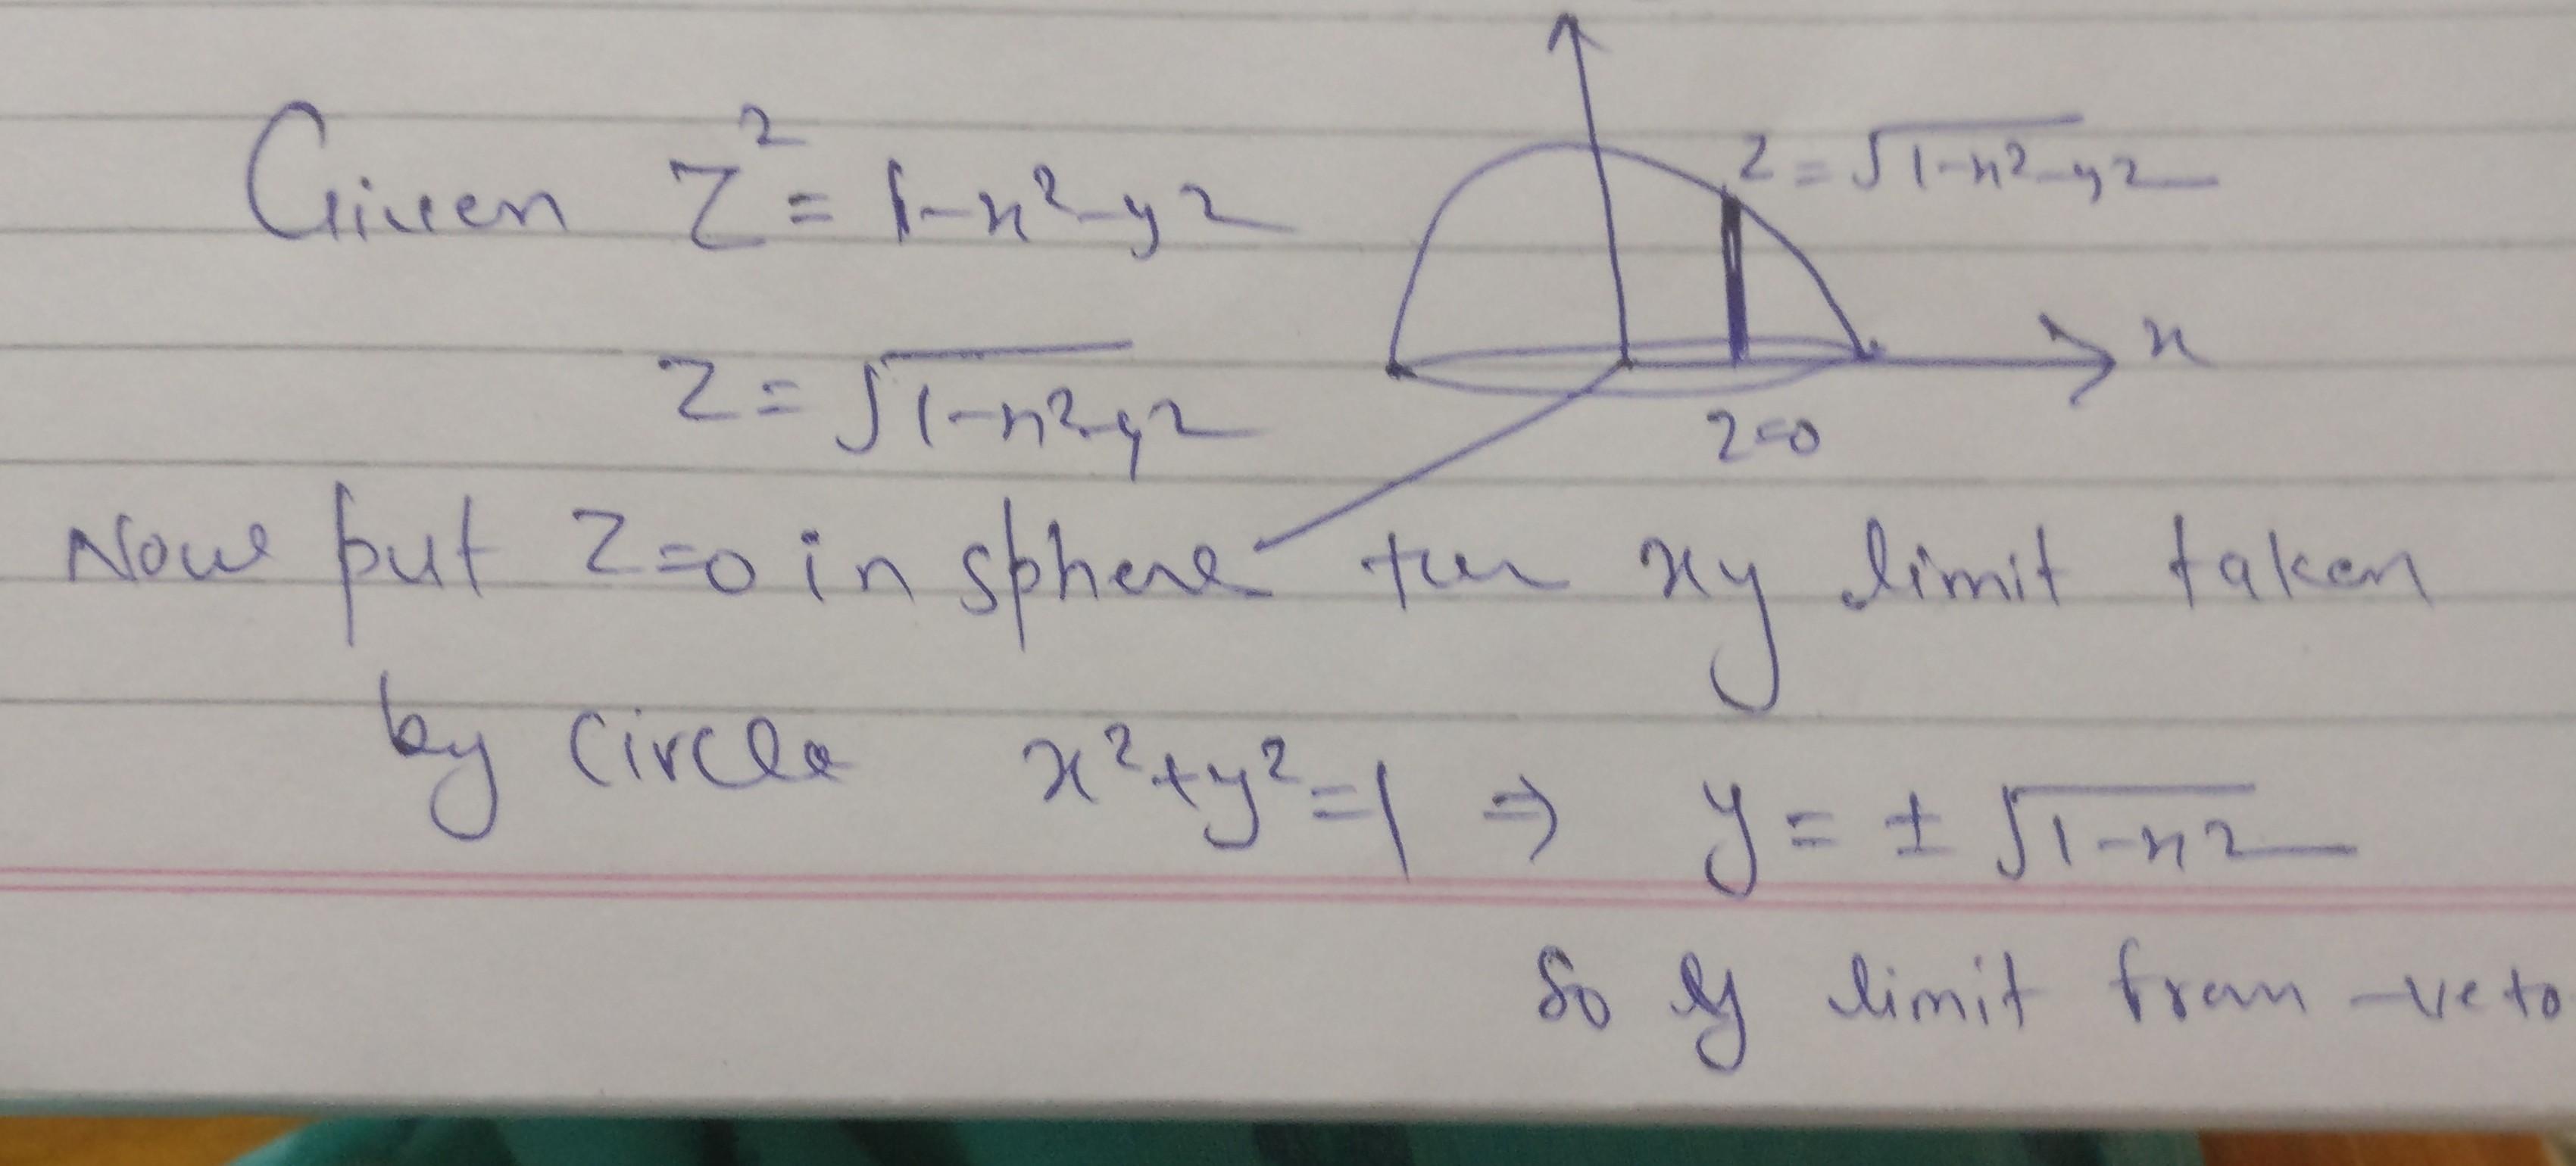 Given z² = 1-x²-y²
z = √1-x²-y²
z = √1-x²-y²
x
z=0
Now put z=0 in sphere xy limit taken
by circle x²+y²=1 ⇒ y = ± √1-x²
So y limit from -ve to